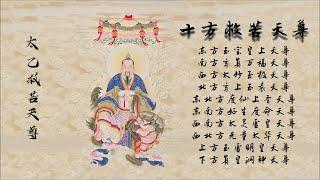 太乙救苦天尊
十方救苦天尊
东方玉宝皇上天尊
南方玄真万福天尊
西方太妙至极天尊
北方玄上玉天尊
东北方度仙上圣天尊
东南方好生度命天尊
西南方太灵虚皇天尊
西北方无量太华天尊
上方玉虚明皇天尊
下方真皇洞神天尊